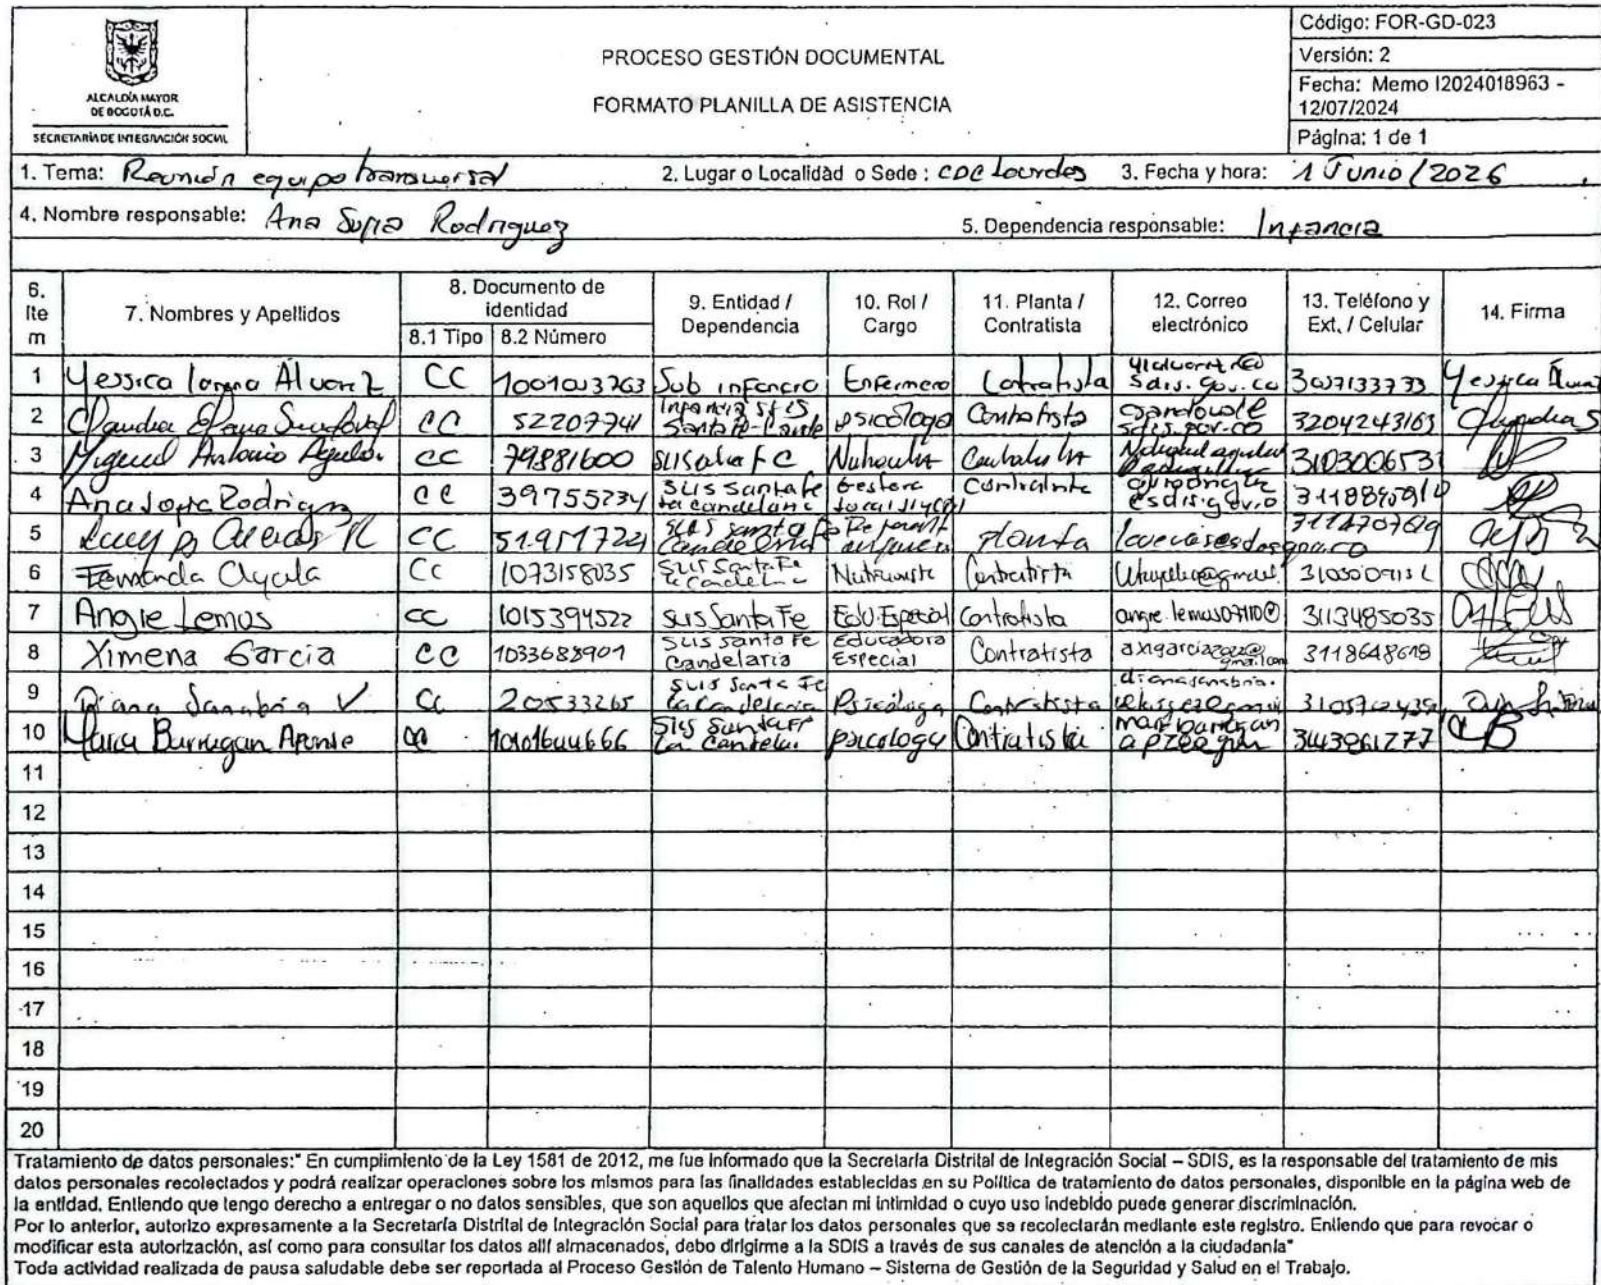 ALCALDÍA MAYOR
DE BOGOTÁ D.C.
SECRETARÍA DE INTEGRACIÓN SOCIAL
PROCESO GESTIÓN DOCUMENTAL
FORMATO PLANILLA DE ASISTENCIA
Código: FOR-GD-023
Versión: 2
Fecha: Memo I2024018963 -
12/07/2024
Página: 1 de 1
1. Tema: Reunión equipo transversal 2. Lugar o Localidad o Sede: CDC Lourdes 3. Fecha y hora: 1 Junio / 2026
4. Nombre responsable: Ana Sofia Rodriguez 5. Dependencia responsable: Infancia
6. Item 7. Nombres y Apellidos 8. Documento de identidad 8.1 Tipo 8.2 Número 9. Entidad / Dependencia 10. Rol / Cargo 11. Planta / Contratista 12. Correo electrónico 13. Teléfono y Ext. / Celular 14. Firma
1 Yessica Lorena Alvarez CC Sub infancia Enfermero Contratista sdis.gov.co 3057133733 Yessica
2 Claudia Sandoval CC 52207741 Infancia Santa Fe psicologa Contratista 3204243163 Claudia S
3 Miguel Antonio Aguilar CC 79881600 Contratista
4 Ana Sofia Rodriguez CC 39755234 SLIS Santa fe la candelaria Gestora
5 Lucy CC planta
6 Fernanda Ayala CC 1073158035 SLIS Santa Fe la Candelaria Contratista
7 Angie Lemos CC 1015394522 SLIS Santa Fe Edu. Especial Contratista 3113485035
8 Ximena Garcia CC 1033688901 SLIS Santa Fe Candelaria Educadora Especial Contratista axgarcia2022@gmail.com 3118648618
9 Diana Sanabria V CC 20533265 SLIS Santa Fe la Candelaria Psicóloga Contratista
10 Barragan Aponte CC SLIS Santa Fe la Candelaria psicologa Contratista
11
12
13
14
15
16
17
18
19
20
Tratamiento de datos personales:" En cumplimiento de la Ley 1581 de 2012, me fue informado que la Secretaría Distrital de Integración Social – SDIS, es la responsable del tratamiento de mis
datos personales recolectados y podrá realizar operaciones sobre los mismos para las finalidades establecidas en su Política de tratamiento de datos personales, disponible en la página web de
la entidad. Entiendo que tengo derecho a entregar o no datos sensibles, que son aquellos que afectan mi intimidad o cuyo uso indebido puede generar discriminación.
Por lo anterior, autorizo expresamente a la Secretaría Distrital de Integración Social para tratar los datos personales que se recolectarán mediante este registro. Entiendo que para revocar o
modificar esta autorización, así como para consultar los datos allí almacenados, debo dirigirme a la SDIS a través de sus canales de atención a la ciudadanía"
Toda actividad realizada de pausa saludable debe ser reportada al Proceso Gestión de Talento Humano – Sistema de Gestión de la Seguridad y Salud en el Trabajo.